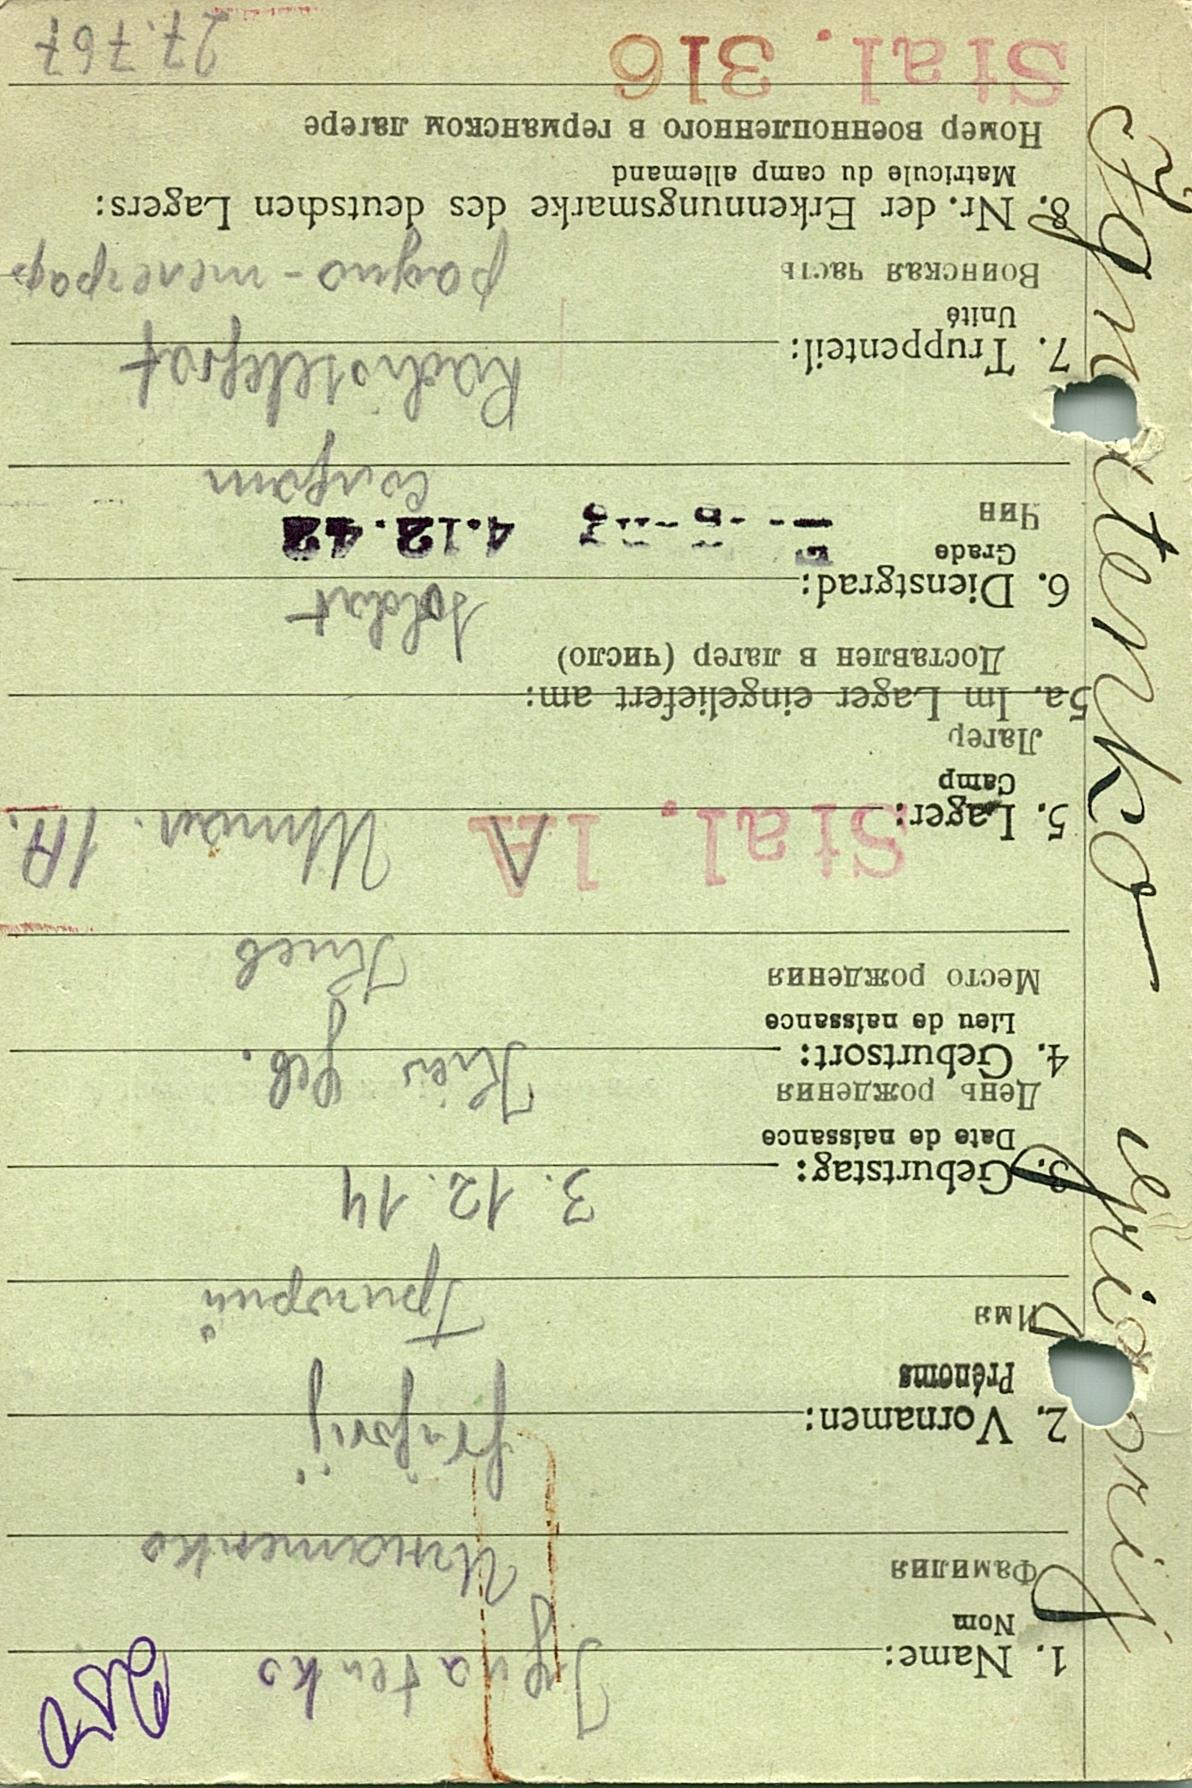 Ignatenko Grigorij
1. Name: Ignatenko
Nom
Фамилия Игнатенко
2. Vornamen: Grigorij
Prénoms
Имя Григорий
3. Geburtstag: 3. 12. 14
Date de naissance
День рождения
4. Geburtsort: Kiew Geb.
Lieu de naissance
Место рождения Киев
5. Lager: Stal. 1A 1A.
Camp
Лагер
5a. Im Lager eingeliefert am:
Доставлен в лагер (число)
6. Dienstgrad: Soldat
Grade 4.12.42
Чин солдат
7. Truppenteil: Radiotelegraf
Unité
Воинская часть радио-телеграф
8. Nr. der Erkennungsmarke des deutschen Lagers:
Matricule du camp allemand
Номер военнопленного в германском лагере
Stal. 316 27.767